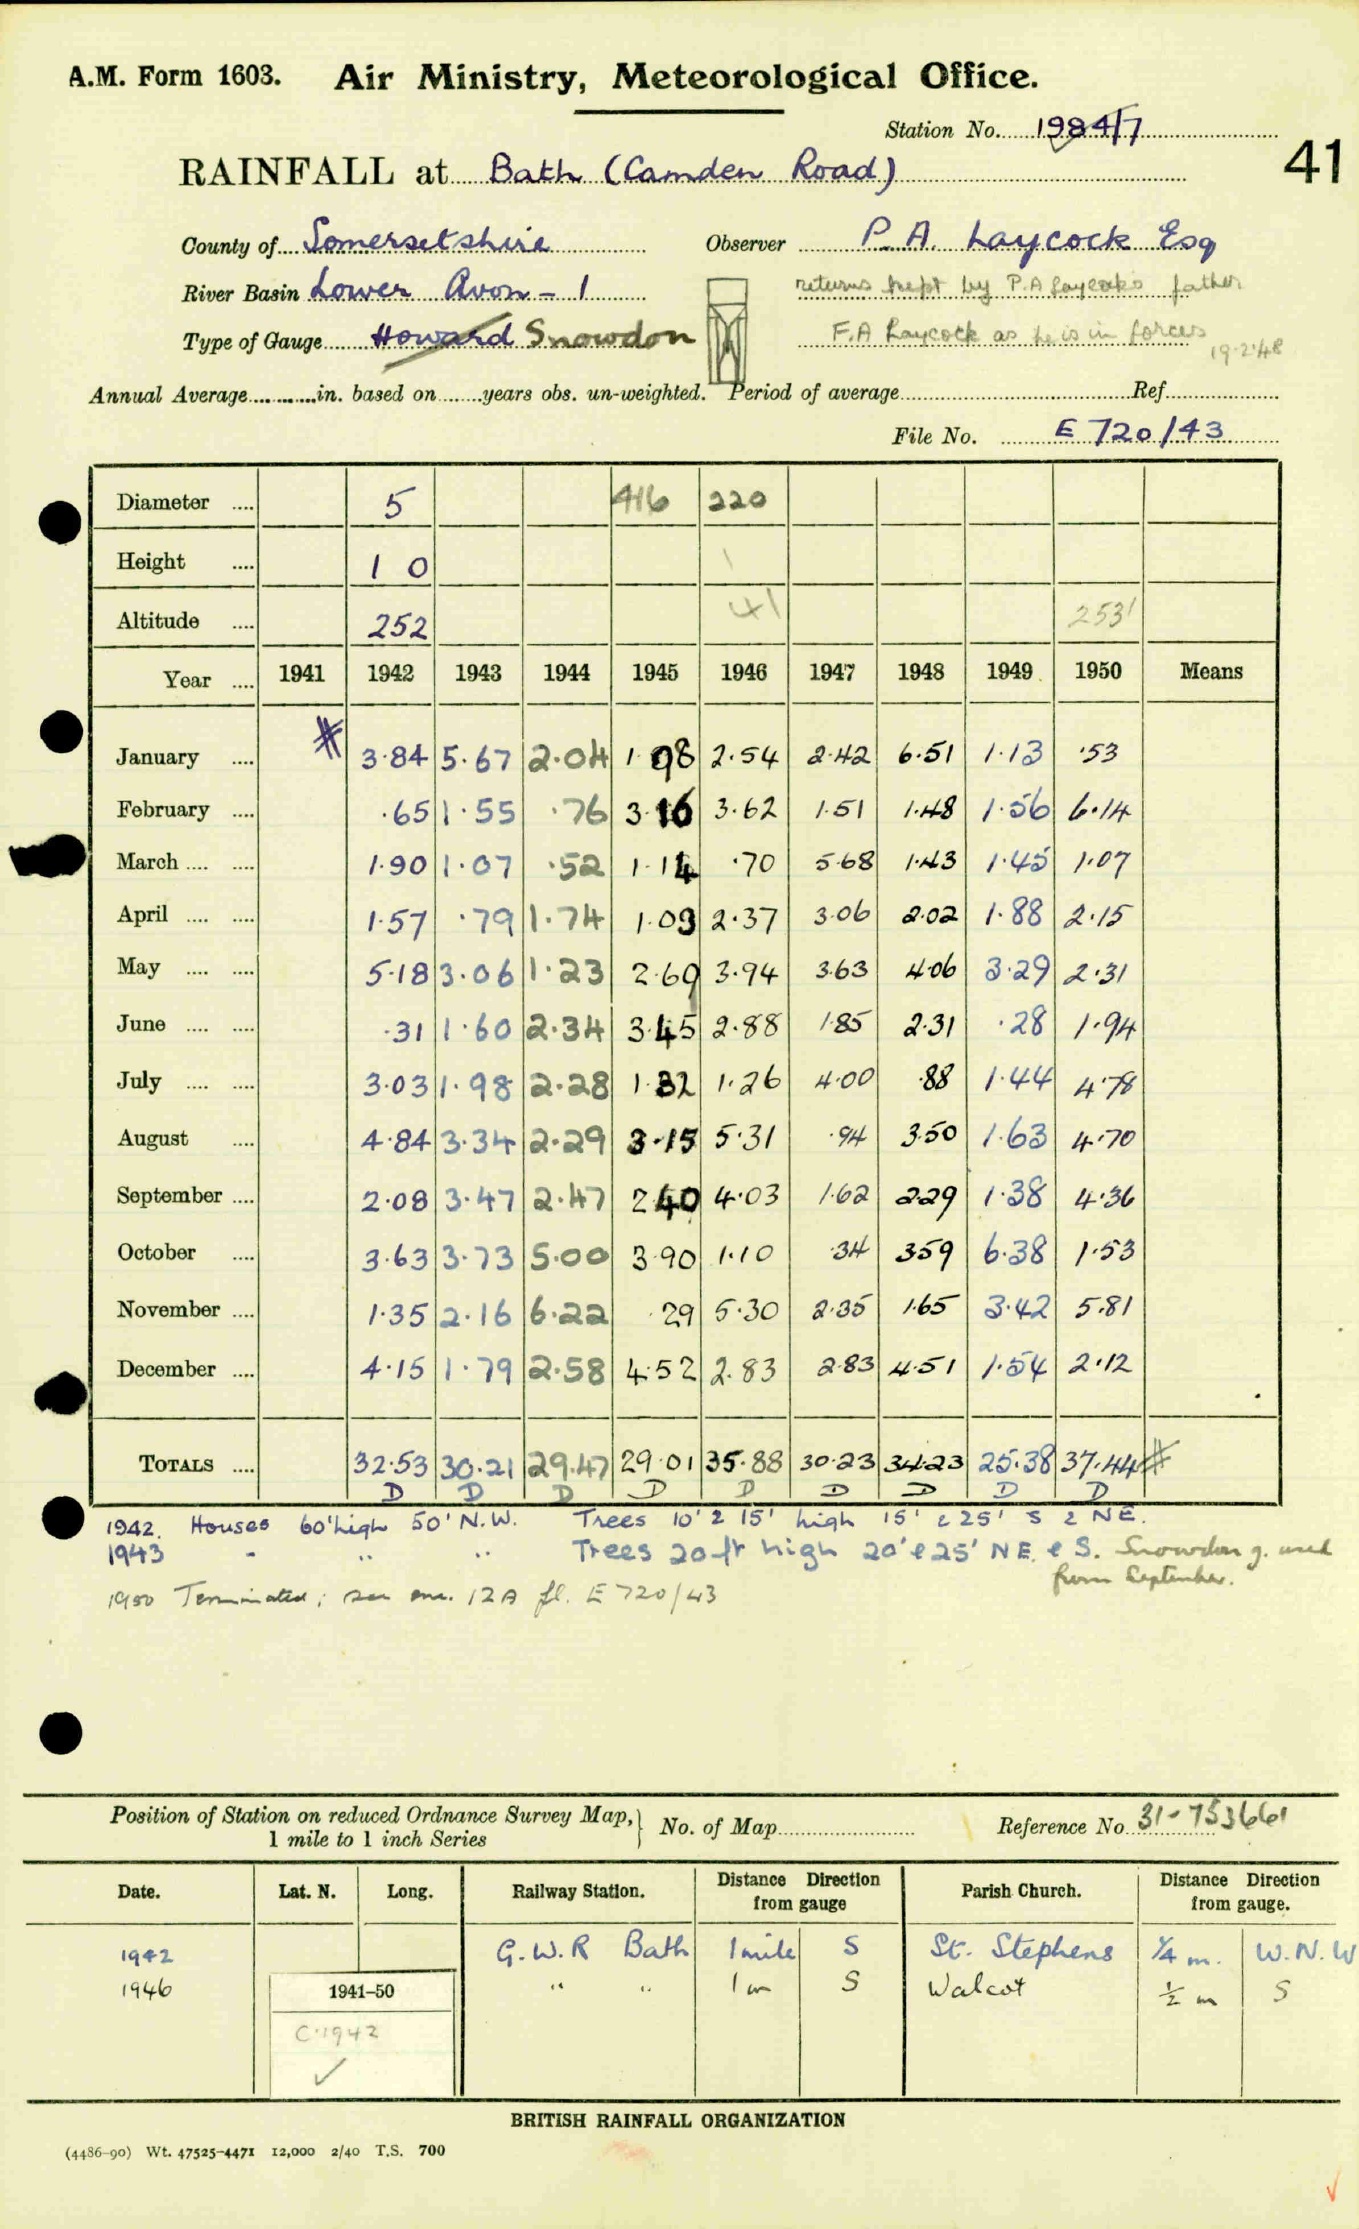 A.M. Form 1603. Air Ministry, Meteorological Office.
Station No. 1984/7
41
RAINFALL at Bath (Camden Road)
County of Somersetshire Observer P. A. Laycock Esq
River Basin Lower Avon - 1 returns kept by P.A Laycocks father
Type of Gauge Howard Snowdon F.A Laycock as he is in forces 19.2.48
Annual Average in. based on years obs. un-weighted. Period of average Ref.
File No. E 720/43
Diameter 5 416 220
Height 1 0 1
Altitude 252 41 253'
Year 1941 1942 1943 1944 1945 1946 1947 1948 1949 1950 Means
January # 3.84 5.67 2.04 1.98 2.54 2.42 6.51 1.13 .53
February .65 1.55 .76 3.16 3.62 1.51 1.48 1.56 6.14
March 1.90 1.07 .52 1.14 .70 5.68 1.43 1.45 1.07
April 1.57 .79 1.74 1.09 2.37 3.06 2.02 1.88 2.15
May 5.18 3.06 1.23 2.69 3.94 3.63 4.06 3.29 2.31
June .31 1.60 2.34 3.45 2.88 1.85 2.31 .28 1.94
July 3.03 1.98 2.28 1.32 1.26 4.00 .88 1.44 4.78
August 4.84 3.34 2.29 3.15 5.31 .94 3.50 1.63 4.70
September 2.08 3.47 2.47 2.40 4.03 1.62 2.29 1.38 4.36
October 3.63 3.73 5.00 3.90 1.10 .34 3.59 6.38 1.53
November 1.35 2.16 6.22 .29 5.30 2.35 1.65 3.42 5.81
December 4.15 1.79 2.58 4.52 2.83 2.83 4.51 1.54 2.12
TOTALS 32.53 30.21 29.47 29.01 35.88 30.23 34.23 25.38 37.44 #
D D D D D D D D D
1942. Houses 60' high 50' N.W. Trees 10' & 15' high 15' & 25' S & NE.
1943 - " " Trees 20 ft high 20' & 25' NE. & S. Snowdon g. used
from September.
1950 Terminated; see enc. 12A fl. E 720/43
Position of Station on reduced Ordnance Survey Map,
1 mile to 1 inch Series
No. of Map Reference No 31-753661
Date. Lat. N. Long. Railway Station. Distance from gauge Direction Parish Church. Distance from gauge. Direction
1942 G.W.R Bath 1 mile S St. Stephens ¼ m. W.N.W
1946 " " 1 m S Walcot ½ m S
1941-50
C.1942
BRITISH RAINFALL ORGANIZATION
(4486-90) Wt. 47525-4471 12,000 2/40 T.S. 700